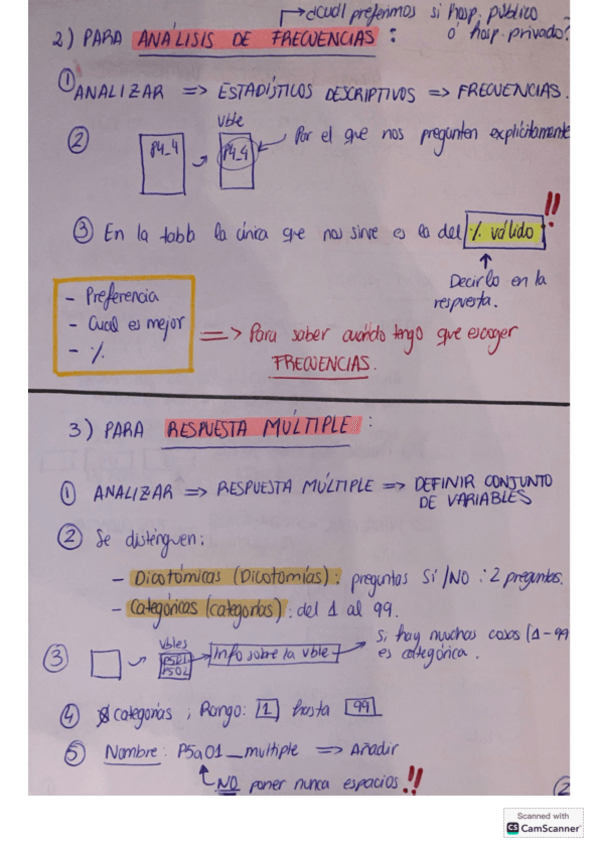 → ¿cuál preferimos si hosp. público
ó hosp. privado?
2) PARA ANÁLISIS DE FRECUENCIAS:
① ANALIZAR => ESTADÍSTICOS DESCRIPTIVOS => FRECUENCIAS.
Vble
② P4_4 → P4_4 ← Por el que nos pregunten explícitamente
③ En la tabla la única que nos sirve es la del % válido!!
↑
Decirlo en la
respuesta.
- Preferencia
- Cual es mejor
- %
=> Para saber cuándo tengo que escoger
FRECUENCIAS.
3) PARA RESPUESTA MÚLTIPLE:
① ANALIZAR => RESPUESTA MÚLTIPLE => DEFINIR CONJUNTO
DE VARIABLES
② Se distinguen:
- Dicotómicas (Dicotomías): preguntas SI/NO : 2 preguntas.
- Categóricas (categorías): del 1 al 99.
③ Vbles
→ Info sobre la vble → Si hay muchos casos (1-99
es categórica.
④ categorías ; Rango: 1 hasta 99
⑤ Nombre: P5a01_multiple => Añadir
NO poner nunca espacios!!
2
Scanned with
CS CamScanner